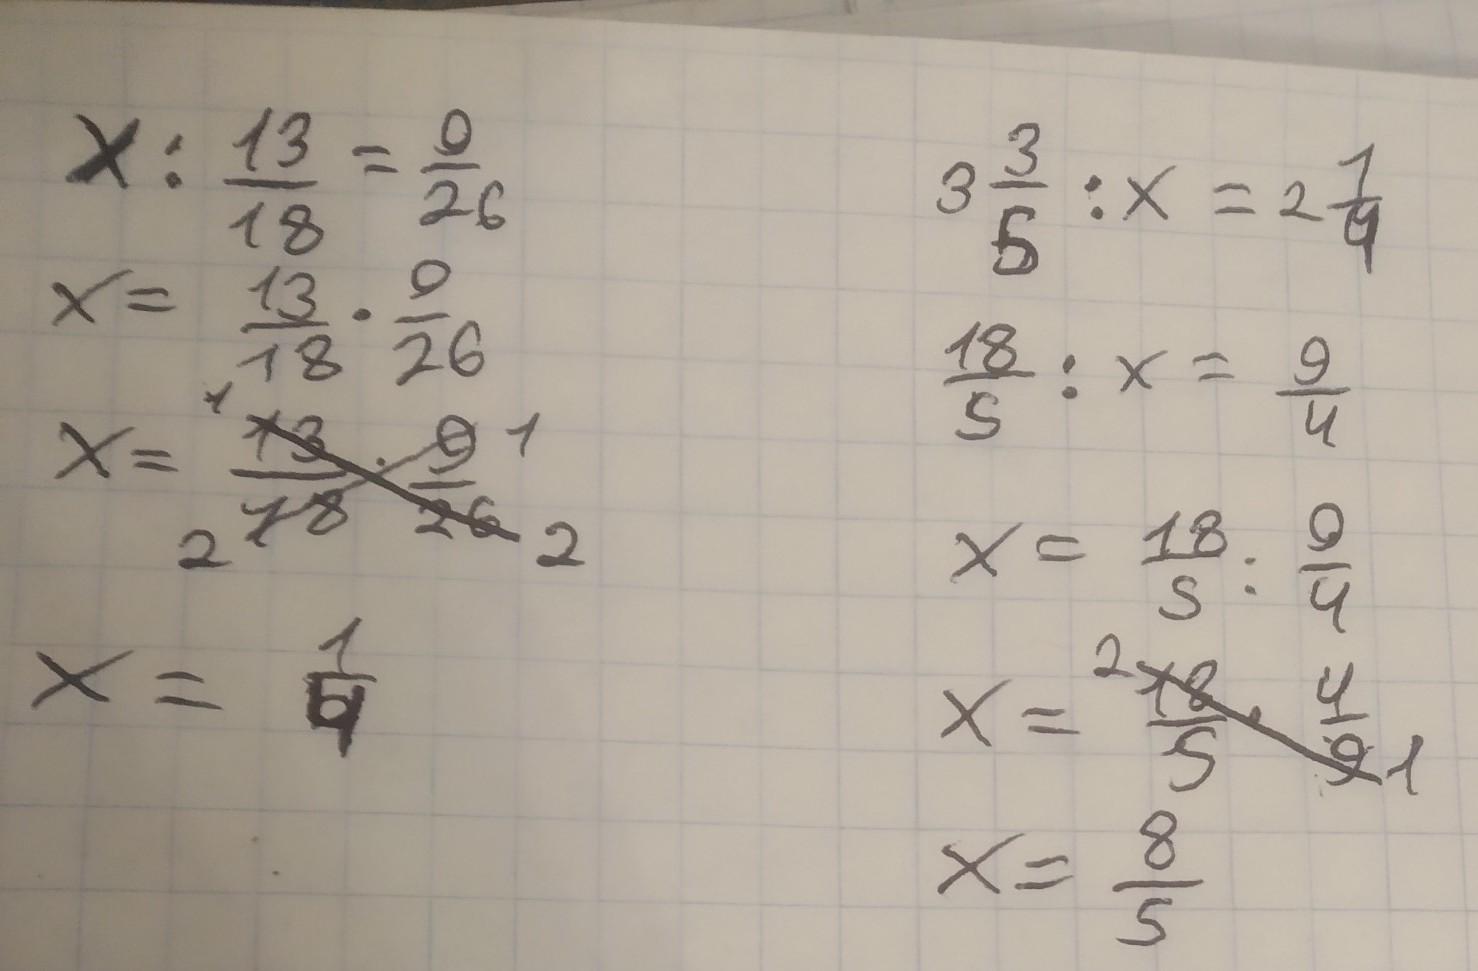 x : 13/18 = 9/26
x = 13/18 · 9/26
x = 13/18 · 9/26 1 1 2 2
x = 1/4
3 3/5 : x = 2 1/4
18/5 : x = 9/4
x = 18/5 : 9/4
x = 18/5 · 4/9 2 1
x = 8/5